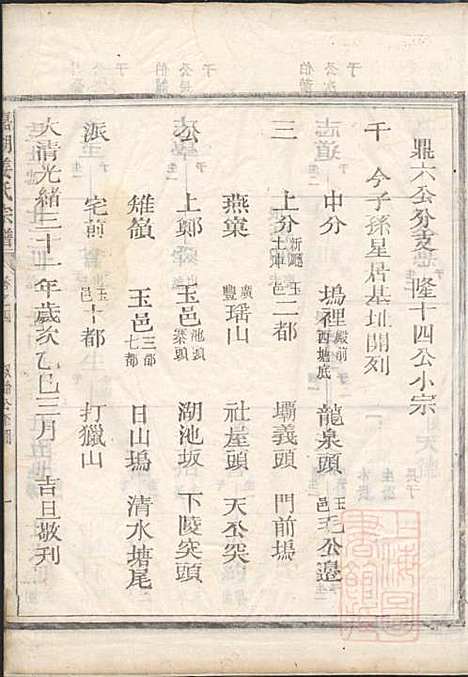 鼎六公分支 隆十四公小宗
千 今子孫星居基址開列
中分 塢裡 殿前 西塘底 龍泉頭 玉邑毛公邉
三 上分 新廳 土庫 玉邑二都 壩義頭 門前塢
燕窠 廣豐瑶山 社屋頭 天公突
公 上鄭 玉邑 池浪 寨頭 湖池坂 下陵突頭
雉嶺 玉邑 三都 七都 日山塢 清水塘尾
派 宅前 玉邑十都 打獵山
大清光緒三十一年歲次乙巳三月 吉旦敬刊
湖姜氏宗譜